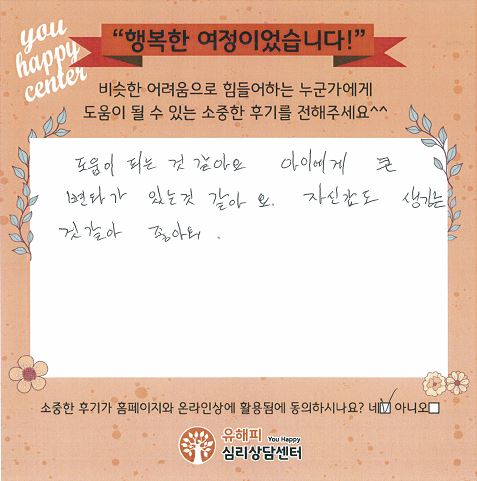 you
happy
center
“행복한 여정이었습니다!”
비슷한 어려움으로 힘들어하는 누군가에게
도움이 될 수 있는 소중한 후기를 전해주세요^^
도움이 되는 것 같아요 아이에게 큰
변화가 있는것 같아요. 자신감도 생기는
것같아 좋아요.
소중한 후기가 홈페이지와 온라인상에 활용됨에 동의하시나요? 네☑ 아니오☐
유해피 You Happy
심리상담센터